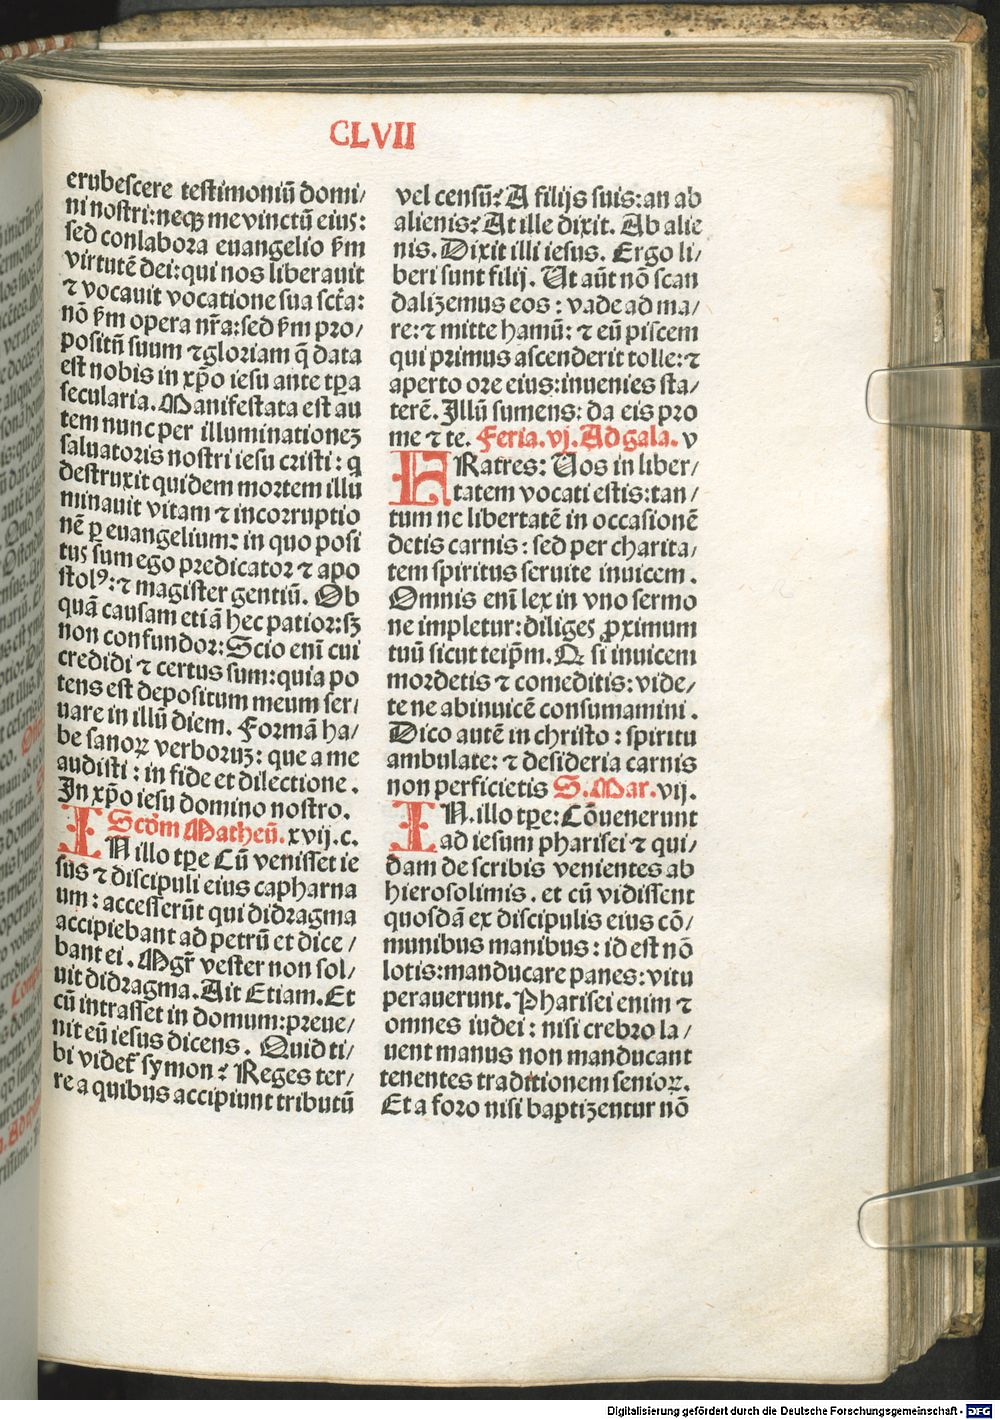 CLVII
erubescere testimoniū domi/
ni nostri: neqꝫ me vinctū eius:
sed conlabora euangelio ẜm
virtutē dei: qui nos liberauit
⁊ vocauit vocatione sua sctā:
nō ẜm opera nr̄a: sed ẜm pro/
positū suum ⁊ gloriam q̄ data
est nobis in xp̄o iesu ante tꝑa
secularia. Manifestata est au
tem nunc per illuminationeꝫ
saluatoris nostri iesu cristi: q
destruxit quidem mortem illu
minauit vitam ⁊ incorruptio
nē ꝑ euangelium: in quo posi
tus sum ego predicator ⁊ apo
stolꝰ: ⁊ magister gentiū. Ob
quā causam etiā hec patior: sꝫ
non confundor: Scio enī cui
credidi ⁊ certus sum: quia po
tens est depositum meum ser/
uare in illū diem. Formā ha/
be sanoꝝ verboruꝫ: que a me
audisti: in fide et dilectione.
In xp̄o iesu domino nostro.
Scd̄m Matheū. xvij. c.
IN illo tꝑe Cū venisset ie
sus ⁊ discipuli eius capharna
um: accesserūt qui didragma
accipiebant ad petrū et dice/
bant ei. Mgr̄ vester non sol/
uit didragma. Ait Etiam. Et
cū intrasset in domum: preue/
nit eū iesus dicens. Quid ti/
bi videt̄ symon? Reges ter/
re a quibus accipiunt tributū
vel censū? A filijs suis: an ab
alienis? At ille dixit. Ab alie
nis. Dixit illi iesus. Ergo li/
beri sunt filij. Ut aūt nō scan
dalizemus eos: vade ad ma/
re: ⁊ mitte hamū: ⁊ eū piscem
qui primus ascenderit tolle: ⁊
aperto ore eius: inuenies sta/
terē. Illū sumens: da eis pro
me ⁊ te. Feria. vj. Ad gala. v
FRatres: Uos in liber/
tatem vocati estis: tan/
tum ne libertatē in occasionē
detis carnis: sed per charita/
tem spiritus seruite inuicem.
Omnis enī lex in vno sermo
ne impletur: diliges ꝓximum
tuū sicut teip̄m. Q si inuicem
mordetis ⁊ comeditis: vide/
te ne abinuicē consumamini.
Dico autē in christo: spiritu
ambulate: ⁊ desideria carnis
non perficietis S. Mar. vij.
IN. illo tꝑe: Cōuenerunt
ad iesum pharisei ⁊ qui/
dam de scribis venientes ab
hierosolimis. et cū vidissent
quosdā ex discipulis eius cō/
munibus manibus: id est nō
lotis: manducare panes: vitu
perauerunt. Pharisei enim ⁊
omnes iudei: nisi crebro la/
uent manus non manducant
tenentes traditionem senioꝝ.
Et a foro nisi baptizentur nō
Digitalisierung gefördert durch die Deutsche Forschungsgemeinschaft - DFG